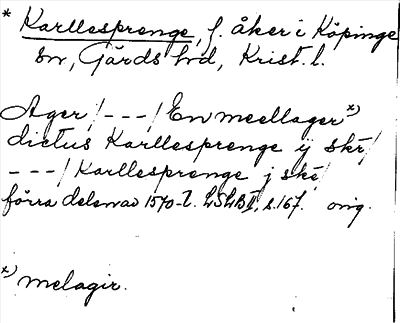 * Karllesprenge, f. åker i Köpinge
sn, Gärds hd, Krist. l.
Ager /---/ En meellager *)
dictus Karllesprenge ij skē/
---/ Karllesprenge j skē/
förra delen av 1570-t. LSLB II, s. 167. orig.
*) melagir.